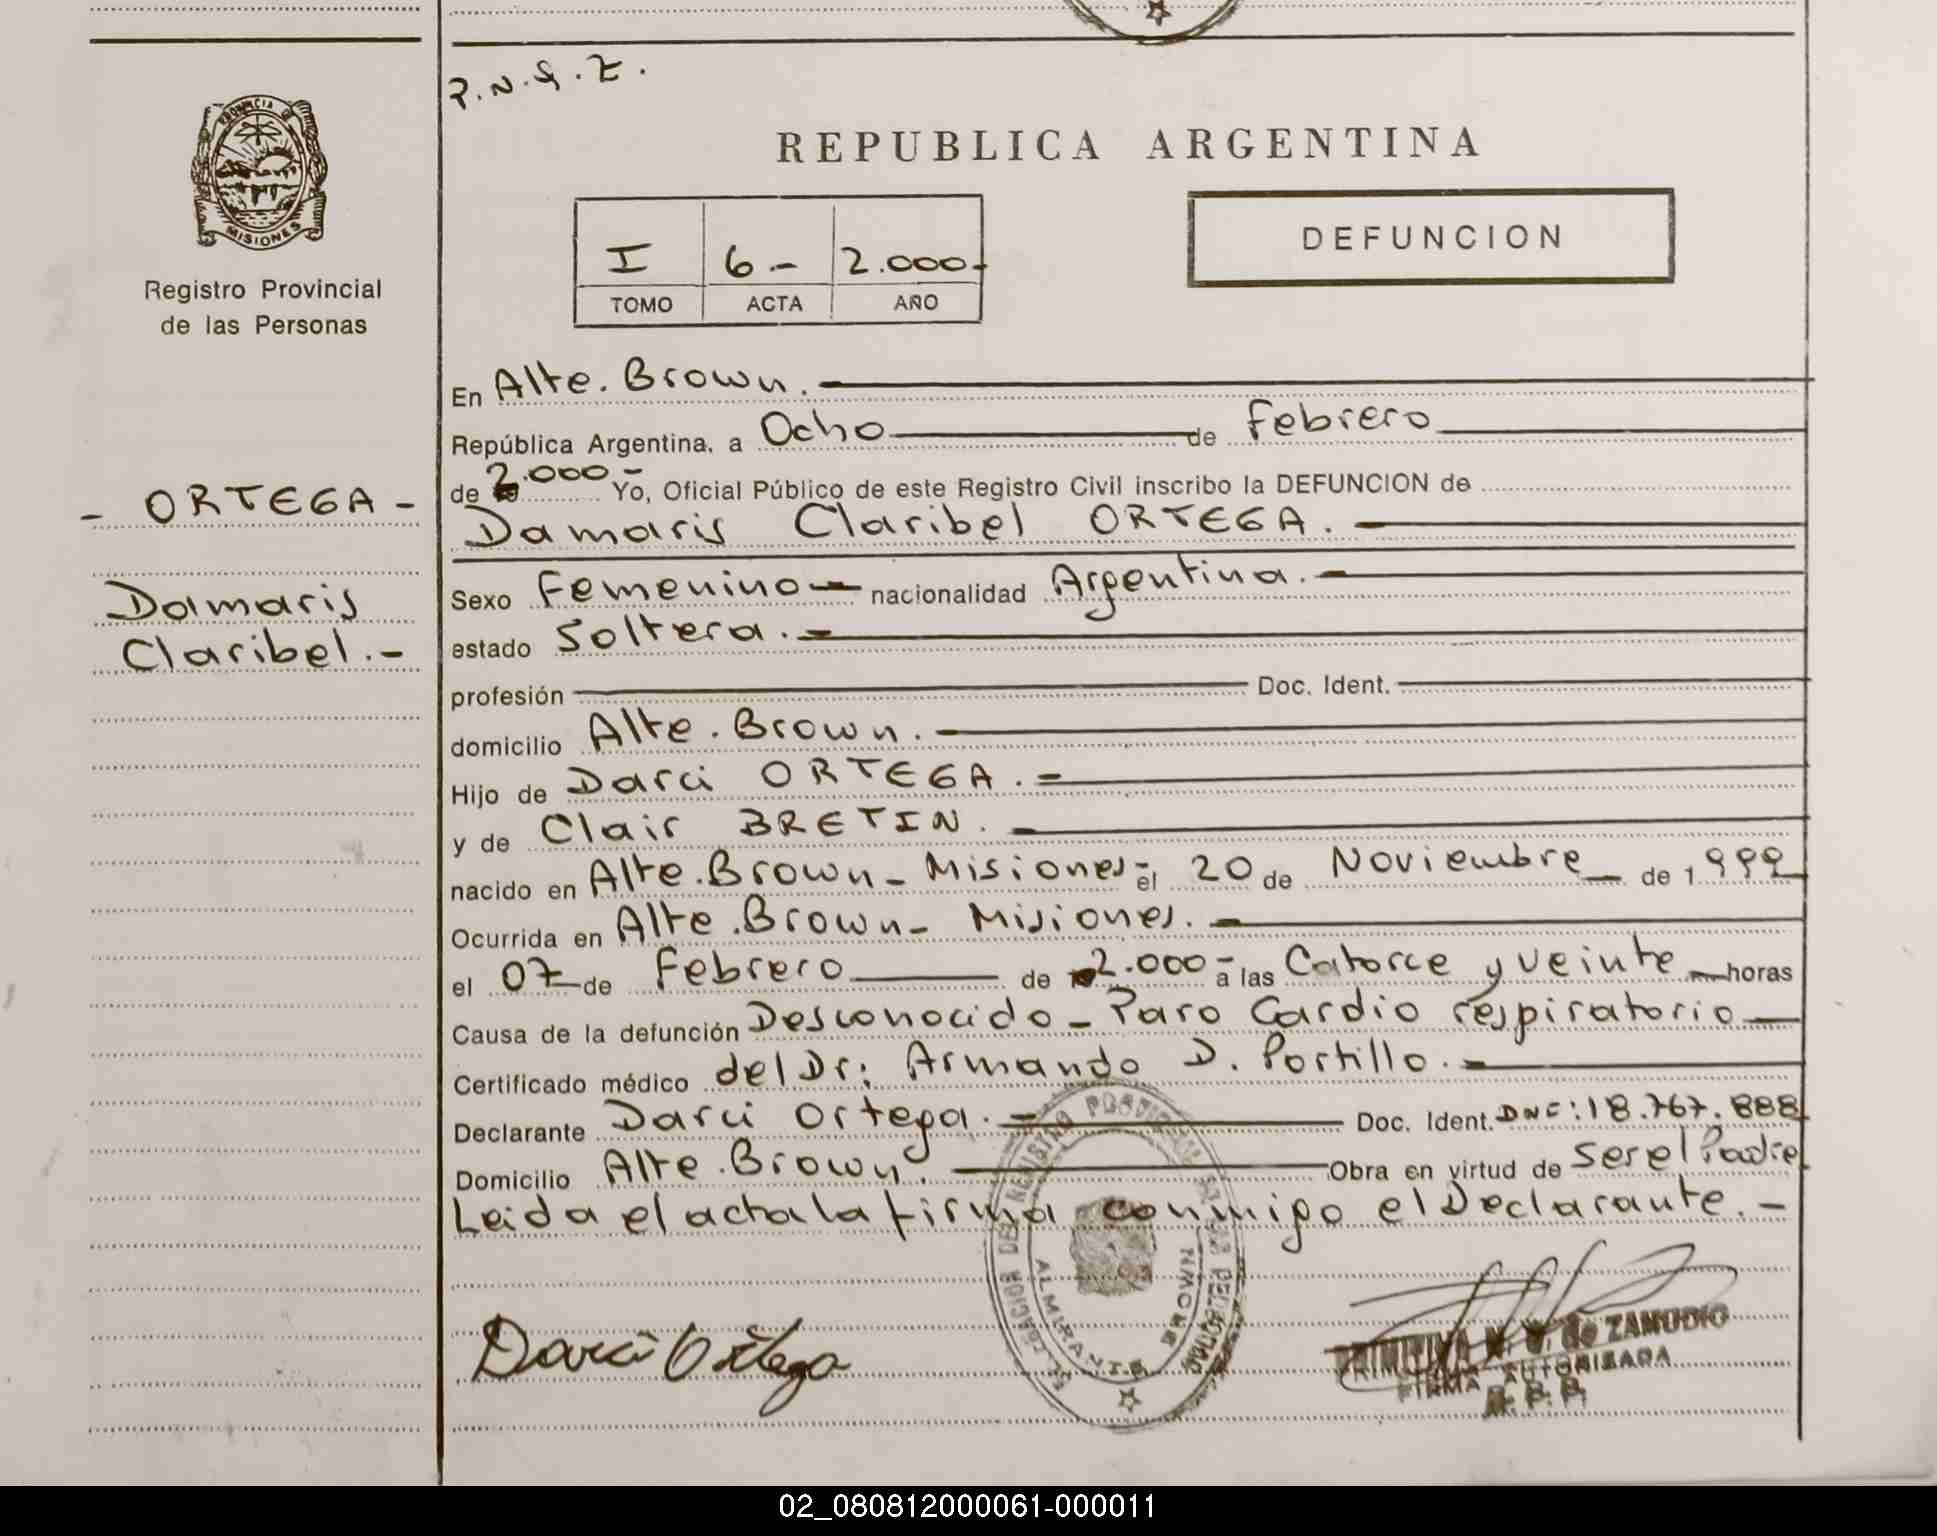 P.N.G.Z.
REPUBLICA ARGENTINA
PROVINCIA DE
MISIONES
Registro Provincial
de las Personas
I 6.- 2.000-
TOMO ACTA AÑO
DEFUNCION
- ORTEGA -
Damaris
Claribel.-
En Alte. Brown.
República Argentina, a Ocho de Febrero
de 2.000- Yo, Oficial Público de este Registro Civil inscribo la DEFUNCION de
Damaris Claribel ORTEGA.
Sexo Femenino nacionalidad Argentina.
estado Soltera.
profesión Doc. Ident.
domicilio Alte. Brown.
Hijo de Darci ORTEGA.
y de Clair BRETIN.
nacido en Alte. Brown - Misiones- el 20 de Noviembre de 1.999
Ocurrida en Alte. Brown - Misiones.
el 07 de Febrero de 2.000- a las Catorce y veinte horas
Causa de la defunción Desconocido - Paro Cardio respiratorio
Certificado médico del Dr: Armando D. Portillo.
Declarante Darci Ortega. Doc. Ident. DNI: 18.767.888
Domicilio Alte. Brown. Obra en virtud de ser el Padre
Leida el acta la firma conmigo el Declarante.-
Darci Ortega
ALMIRANTE BROWN
de ZAMUDIO
FIRMA AUTORIZADA
R. P. P.
02_080812000061-000011